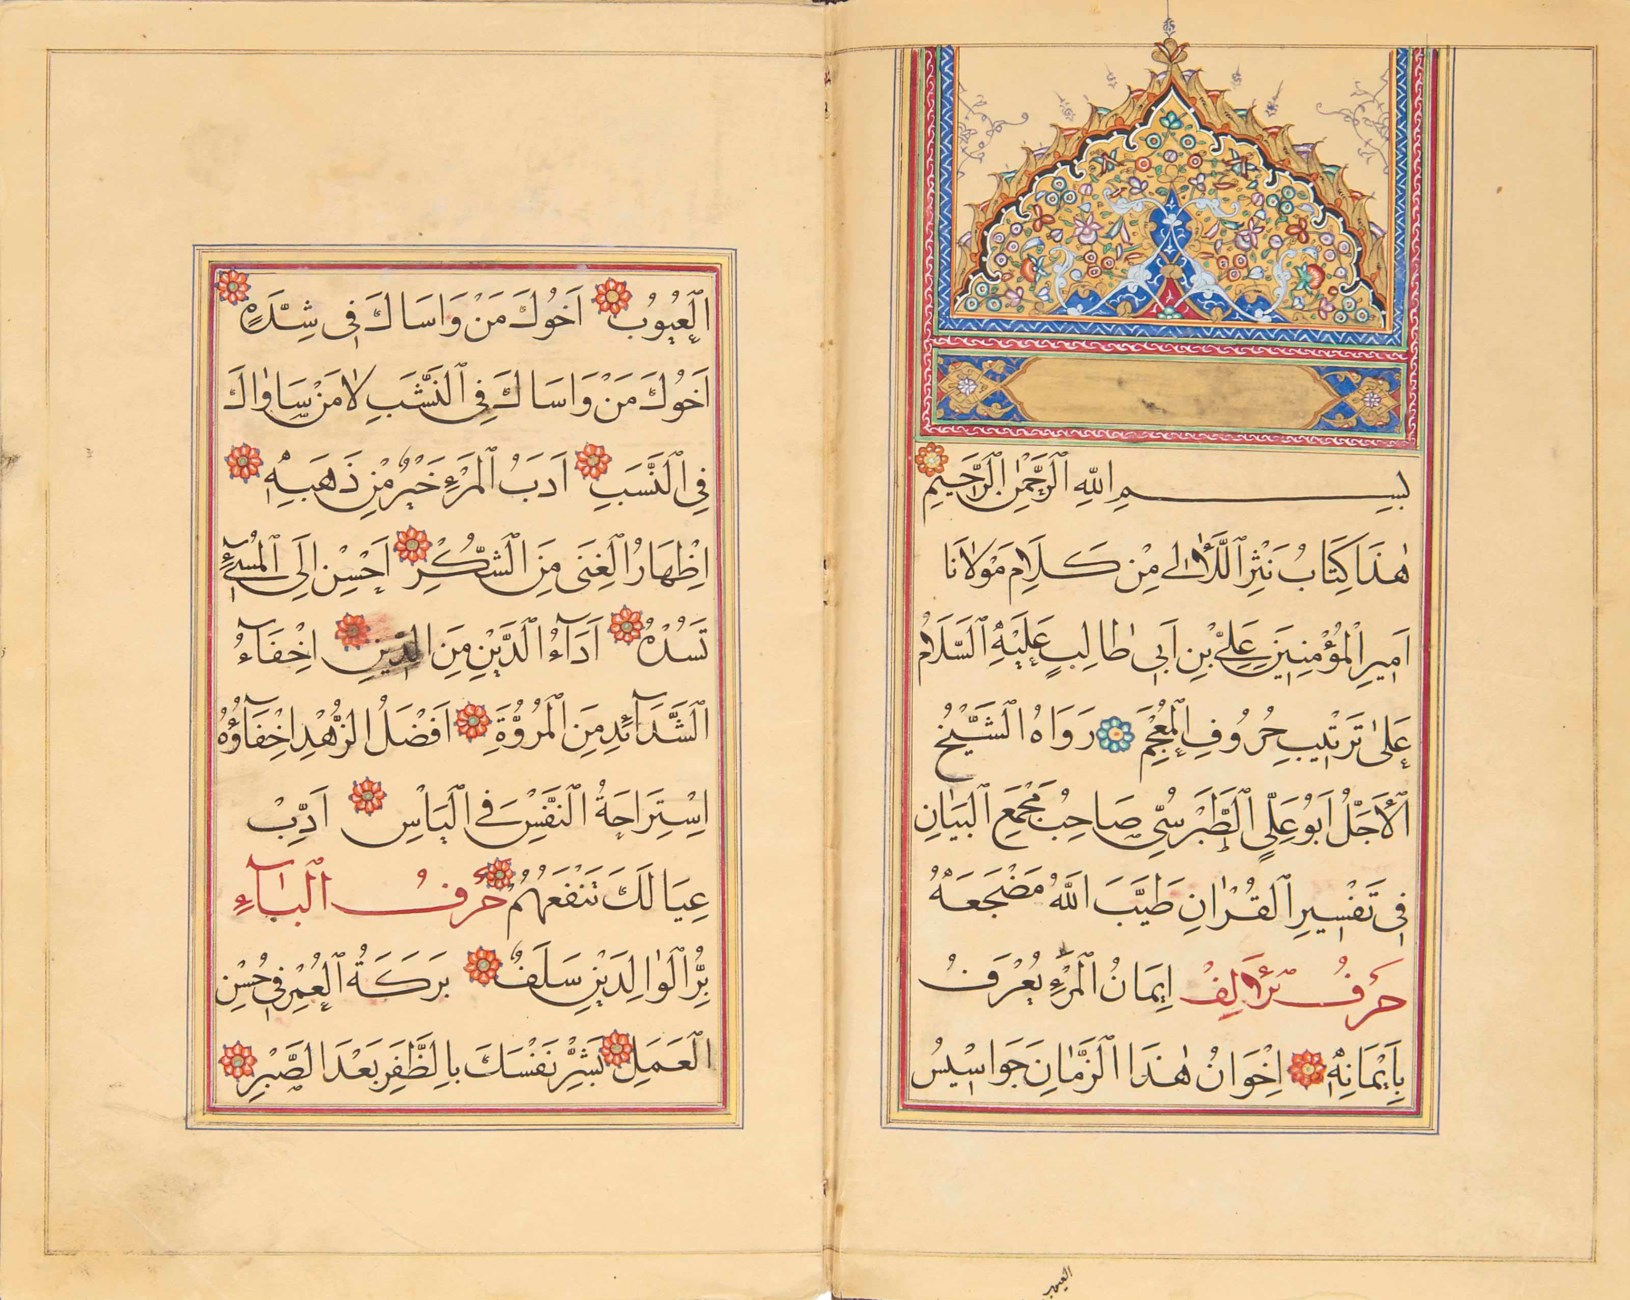 بِسْمِ اللّٰهِ الرَّحْمٰنِ الرَّحِيمِ
هٰذَا كِتَابُ نَثْرِ اللَّآلِي مِنْ كَلَامِ مَوْلَانَا
اَمِيرِ الْمُؤْمِنِينَ عَلِيِّ بْنِ اَبِي طَالِبٍ عَلَيْهِ السَّلَامُ
عَلٰى تَرْتِيبِ حُرُوفِ الْمُعْجَمِ رَوَاهُ الشَّيْخُ
الْاَجَلُّ اَبُو عَلِيٍّ الطَّبَرْسِيُّ صَاحِبُ مَجْمَعِ الْبَيَانِ
فِي تَفْسِيرِ الْقُرْاٰنِ طَيَّبَ اللّٰهُ مَضْجَعَهُ
حَرْفُ الْاَلِفْ اِيمَانُ الْمَرْءِ يُعْرَفُ
بِاَيْمَانِهِ اِخْوَانُ هٰذَا الزَّمَانِ جَوَاسِيسُ
العيوب
الْعُيُوبُ اَخُوكَ مَنْ وَاسَاكَ فِي شِدَّةٍ
اَخُوكَ مَنْ وَاسَاكَ فِي النَّشَبِ لَا مَنْ سَاوَاكَ
فِي النَّسَبِ اَدَبُ الْمَرْءِ خَيْرٌ مِنْ ذَهَبِهِ
اِظْهَارُ الْغِنَى مِنَ الشُّكْرِ اَحْسِنْ اِلَى الْمُسِيءِ
تَسُدْهُ اَدَاءُ الدَّيْنِ مِنَ الدِّينِ اِخْفَاءُ
الشَّدَآئِدِ مِنَ الْمُرُوَّةِ اَفْضَلُ الزُّهْدِ اِخْفَآؤُهُ
اِسْتِرَاحَةُ النَّفْسِ فِي الْيَاْسِ اَدِّبْ
عِيَالَكَ تَنْفَعْهُمْ حَرْفُ الْبَآءِ
بِرُّ الْوَالِدَيْنِ سَلَفٌ بَرَكَةُ الْعُمْرِ فِي حُسْنِ
الْعَمَلِ بَشِّرْ نَفْسَكَ بِالظَّفَرِ بَعْدَ الصَّبْرِ